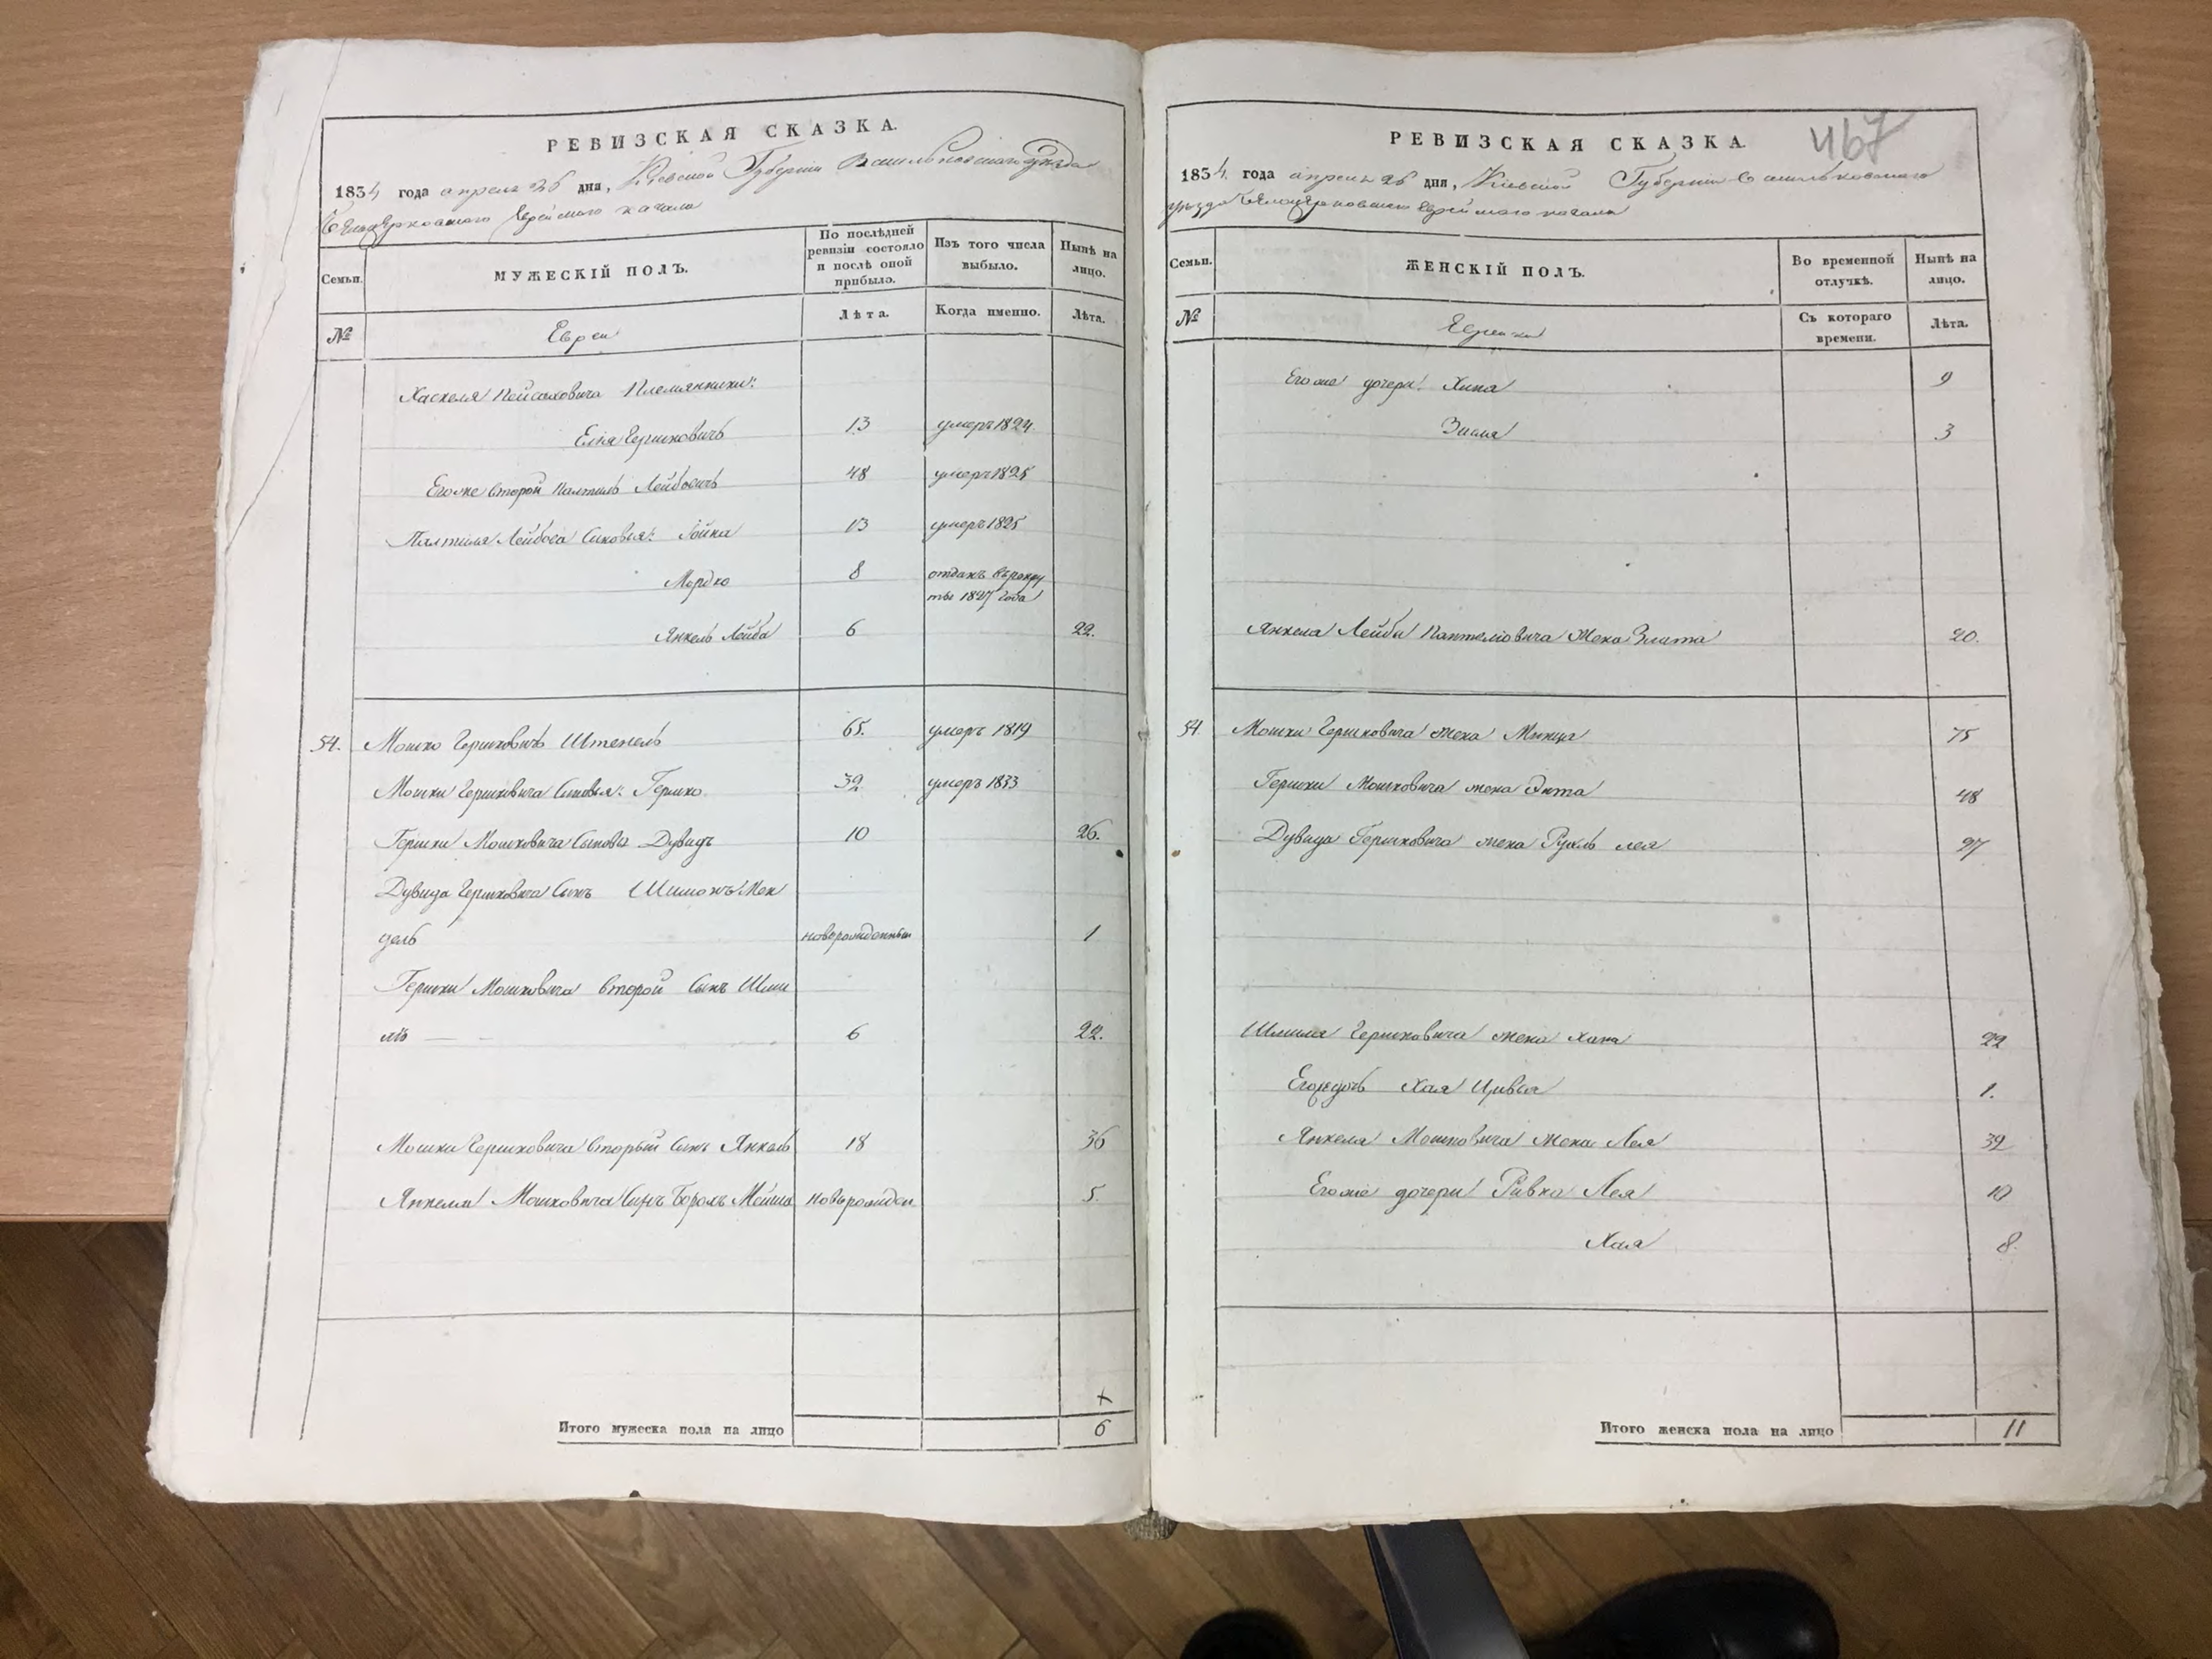 РЕВИЗСКАЯ СКАЗКА.
1834 года апреля 26 дня, Кіевской Губерніи Васильковскаго уезда
Белоцерковскаго Еврейскаго кагала
Семьи.
МУЖЕСКІЙ ПОЛЪ.
По послѣдней ревизіи состояло и послѣ оной прибыло.
Изъ того числа выбыло.
Нынѣ на лицо.
№
Евреи
Лѣта.
Когда именно.
Лѣта.
Хаскеля Пейсаховича Племянники:
Еліа Гершковичъ 13 умеръ 1824
Егоже второй Палтиль Лейбовичъ 48 умеръ 1825
Палтиля Лейбова Сыновья: Іойна 13 умеръ 1825
Мордко 8 отданъ в рекру
ты 1827 года
Янкель Лейба 6 22.
54. Мошко Гершковичъ Штепель 65. умеръ 1819
Мошки Гершковича Сыновья: Гершко 32 умеръ 1833
Гершки Мошковича Сыновья Дувидъ 10 26.
Дувида Гершковича Сынъ Шимонъ Мен
дель новорожденный 1
Гершки Мошковича второй Сынъ Шми
ль 6 22.
Мошки Гершковича вторый Сынъ Янкель 18 36
Янкеля Мошковича Сынъ Борохъ Мейша новорожден 5.
Итого мужеска пола на лицо 6
РЕВИЗСКАЯ СКАЗКА.
467
1834 года апреля 26 дня, Кіевской Губерніи Васильковскаго
уезда Белоцерковскаго Еврейскаго кагала
Семьи.
ЖЕНСКІЙ ПОЛЪ.
Во временной отлучкѣ.
Нынѣ на лицо.
№
Еврейки
Съ котораго времени.
Лѣта.
Егоже дочери: Хина 9
Зисля 3
Янкеля Лейби Палтеліовича жена Злата 20.
54. Мошки Гершковича жена Минця 75
Гершки Мошковича жена Энта 48
Дувида Гершковича жена Рухль лея 27
Шмиля Гершковича жена Хана 22
Егожедочь Хая Цивья 1.
Янкеля Мошковича жена Лея 32
Егоже дочери: Ривка Лея 10
Хая 8.
Итого женска пола на лицо 11